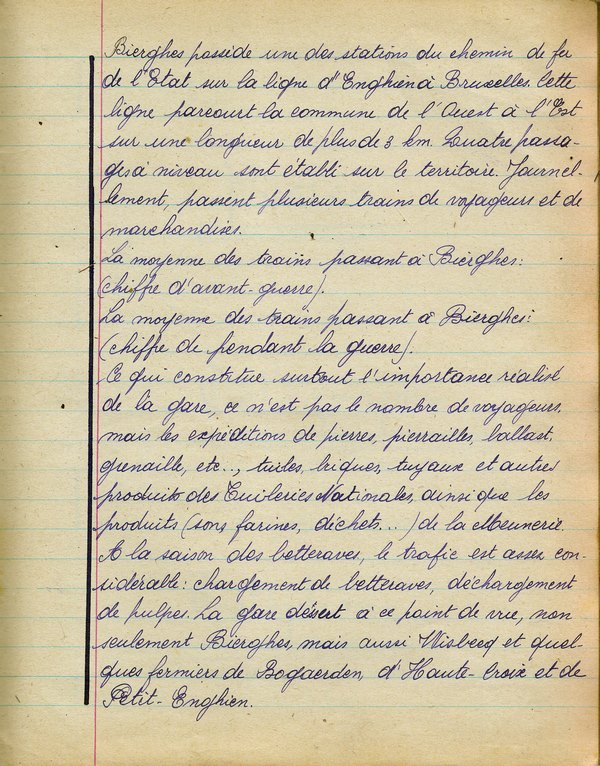 Bierghes possède une des stations du chemin de fer
de l'Etat sur la ligne d'Enghien à Bruxelles. Cette
ligne parcourt la commune de l'Ouest à l'Est
sur une longueur de plus de 3 km. Quatre passa-
ges à niveau sont établi sur le territoire. Journel-
lement, passent plusieurs trains de voyageurs et de
marchandises.
La moyenne des trains passant à Bierghes:
(chiffre d'avant-guerre).
La moyenne des trains passant à Bierghes:
(chiffre de pendant la guerre).
Ce qui constitue surtout l'importance réalisé
de la gare, ce n'est pas le nombre de voyageurs,
mais les expéditions de pierres, pierrailles, ballast,
grenaille, etc.., tuiles, briques, tuyaux et autres
produits des Tuileries Nationales, ainsi que les
produits (sons, farines, déchets...) de la Meunerie.
A la saison des betteraves, le trafic est assez con-
sidérable: chargement de betteraves, déchargement
de pulpes. La gare déssert à ce point de vue, non
seulement Bierghes, mais aussi Wisbecq et quel-
ques fermiers de Bogaerden, d'Haute-Croix et de
Petit-Enghien.